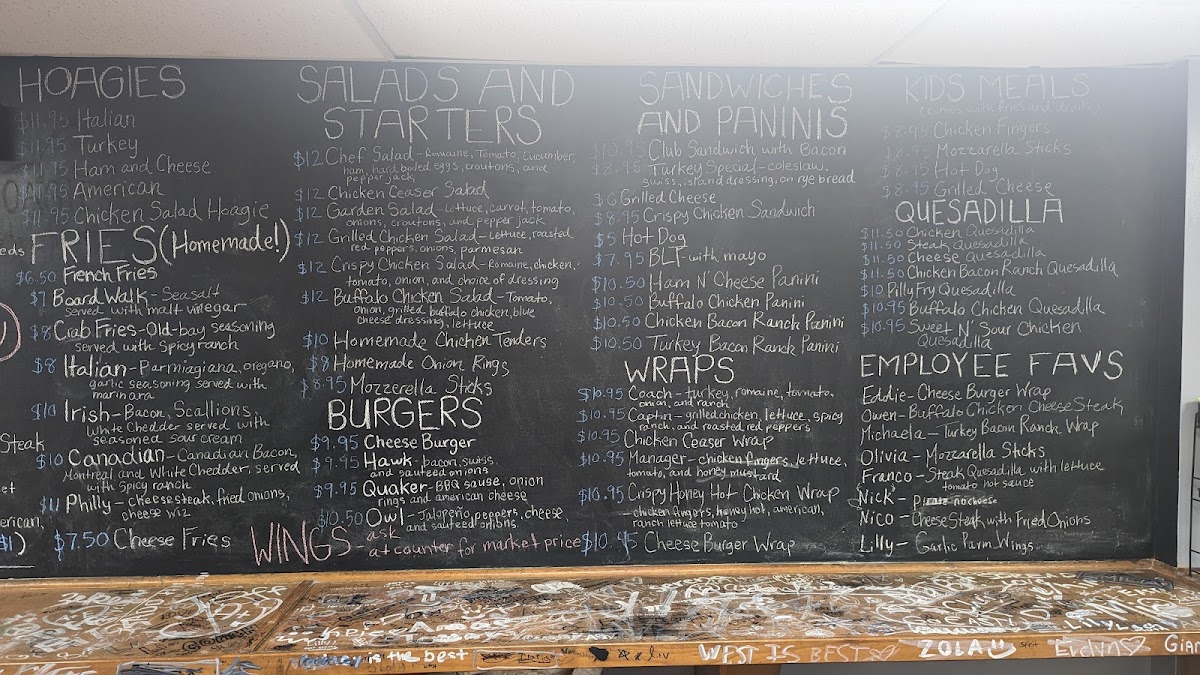 HOAGIES
$11.95 Italian
$11.95 Turkey
$11.95 Ham and Cheese
$11.95 American
$11.95 Chicken Salad Hoagie
FRIES (Homemade!)
eds
$6.50 French Fries
$7 Board Walk - Seasalt
served with malt vinegar
$8 Crab Fries - Old-bay seasoning
served with Spicy ranch
$8 Italian - Parmiagiana, oregano,
garlic seasoning served with
marinara
$10 Irish - Bacon, Scallions,
White Chedder served with
seasoned sour cream
Steak
$10 Canadian - Canadian Bacon,
Montreal and White Chedder, served
with Spicy ranch
et
$11 Philly - cheesesteak, fried onions,
cheese wiz
erican,
$1)
$7.50 Cheese Fries
SALADS AND
STARTERS
$12 Chef Salad - Romaine, Tomato, Cucumber,
ham, hard boiled eggs, croutons, and
pepper jack
$12 Chicken Ceaser Salad
$12 Garden Salad - lettuce, carrot, tomato,
onions, croutons, and pepper jack
$12 Grilled Chicken Salad - Lettuce, roasted
red peppers, onions, parmesan
$12 Crispy Chicken Salad - Romaine, chicken,
tomato, onion, and choice of dressing
$12 Buffalo Chicken Salad - Tomato,
onion, grilled buffalo chicken, blue
cheese dressing, lettuce
$10 Homemade Chicken Tenders
$8 Homemade Onion Rings
$8.95 Mozzerella Sticks
BURGERS
$9.95 Cheese Burger
$9.95 Hawk - bacon, suiss,
and sauteed onions
$9.95 Quaker - BBQ sause, onion
rings and american cheese
$10.50 Owl - Jalopeño, peppers, cheese,
and sauteed onions.
WINGS - ask
at counter for market price
SANDWICHES
AND PANINIS
$10.95 Club Sandwich with Bacon
$8.95 Turkey Special - coleslaw,
swiss, island dressing, on rye bread
$6 Grilled Cheese
$8.95 Crispy Chicken Sandwich
$5 Hot Dog
$7.95 BLT - with mayo
$10.50 Ham N' Cheese Panini
$10.50 Buffalo Chicken Panini
$10.50 Chicken Bacon Ranch Panini
$10.50 Turkey Bacon Ranch Panini
WRAPS
$10.95 Coach - turkey, romaine, tomato,
onion, and ranch
$10.95 Captin - grilled chicken, lettuce, spicy
ranch, and roasted red peppers
$10.95 Chicken Ceaser Wrap
$10.95 Manager - chicken fingers, lettuce,
tomato, and honey mustard
$10.95 Crispy Honey Hot Chicken Wrap
- chicken fingers, honey hot, american,
ranch lettuce tomato
$10.95 Cheese Burger Wrap
KIDS MEALS
(comes with fries and drink)
$8.95 Chicken Fingers
$8.95 Mozzarella Sticks
$8.95 Hot Dog
$8.95 Grilled Cheese
QUESADILLA
$11.50 Chicken Quesadilla
$11.50 Steak Quesadilla
$11.50 Cheese Quesadilla
$11.50 Chicken Bacon Ranch Quesadilla
$10 Pilly Fry Quesadilla
$10.95 Buffalo Chicken Quesadilla
$10.95 Sweet N' Sour Chicken
Quesadilla
EMPLOYEE FAVS
Eddie - Cheese Burger Wrap
Owen - Buffalo Chicken Cheese Steak
Michaela - Turkey Bacon Ranch Wrap
Olivia - Mozzarella Sticks
Franco - Steak Quesadilla with lettuce
tomato hot sauce
Nick - no cheese
Nico - Cheese Steak with Fried Onions
Lilly - Garlic Parm Wings
is the best
WEST IS BEST
ZOLA
Evelyn